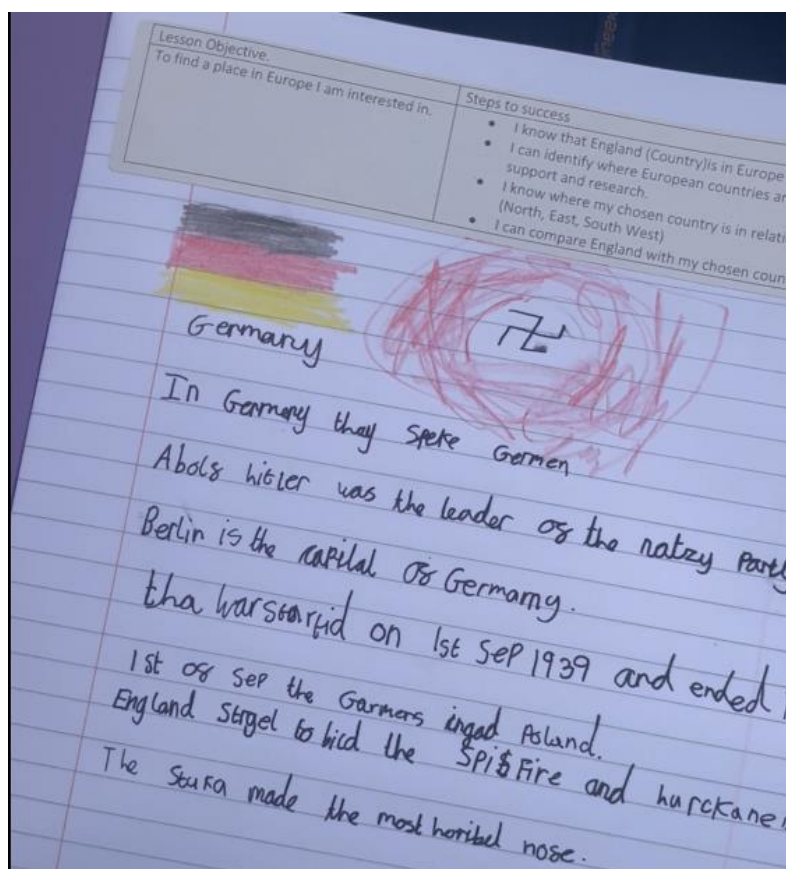 Lesson Objective.
To find a place in Europe I am interested in.
Steps to success
• I know that England (Country)is in Europe
• I can identify where European countries ar
support and research.
• I know where my chosen country is in relati
(North, East, South West)
• I can compare England with my chosen coun
Germany
In Germany thay speke Germen
Abolf hitler was the leader of the natzy Party
Berlin is the capilal of Germamy.
tha war startid on 1st Sep 1939 and ended
1st of Sep the Garmers ingad Poland.
England Strgel to bicd the Spitfire and hurckane
The Stuka made the most horibel nose.